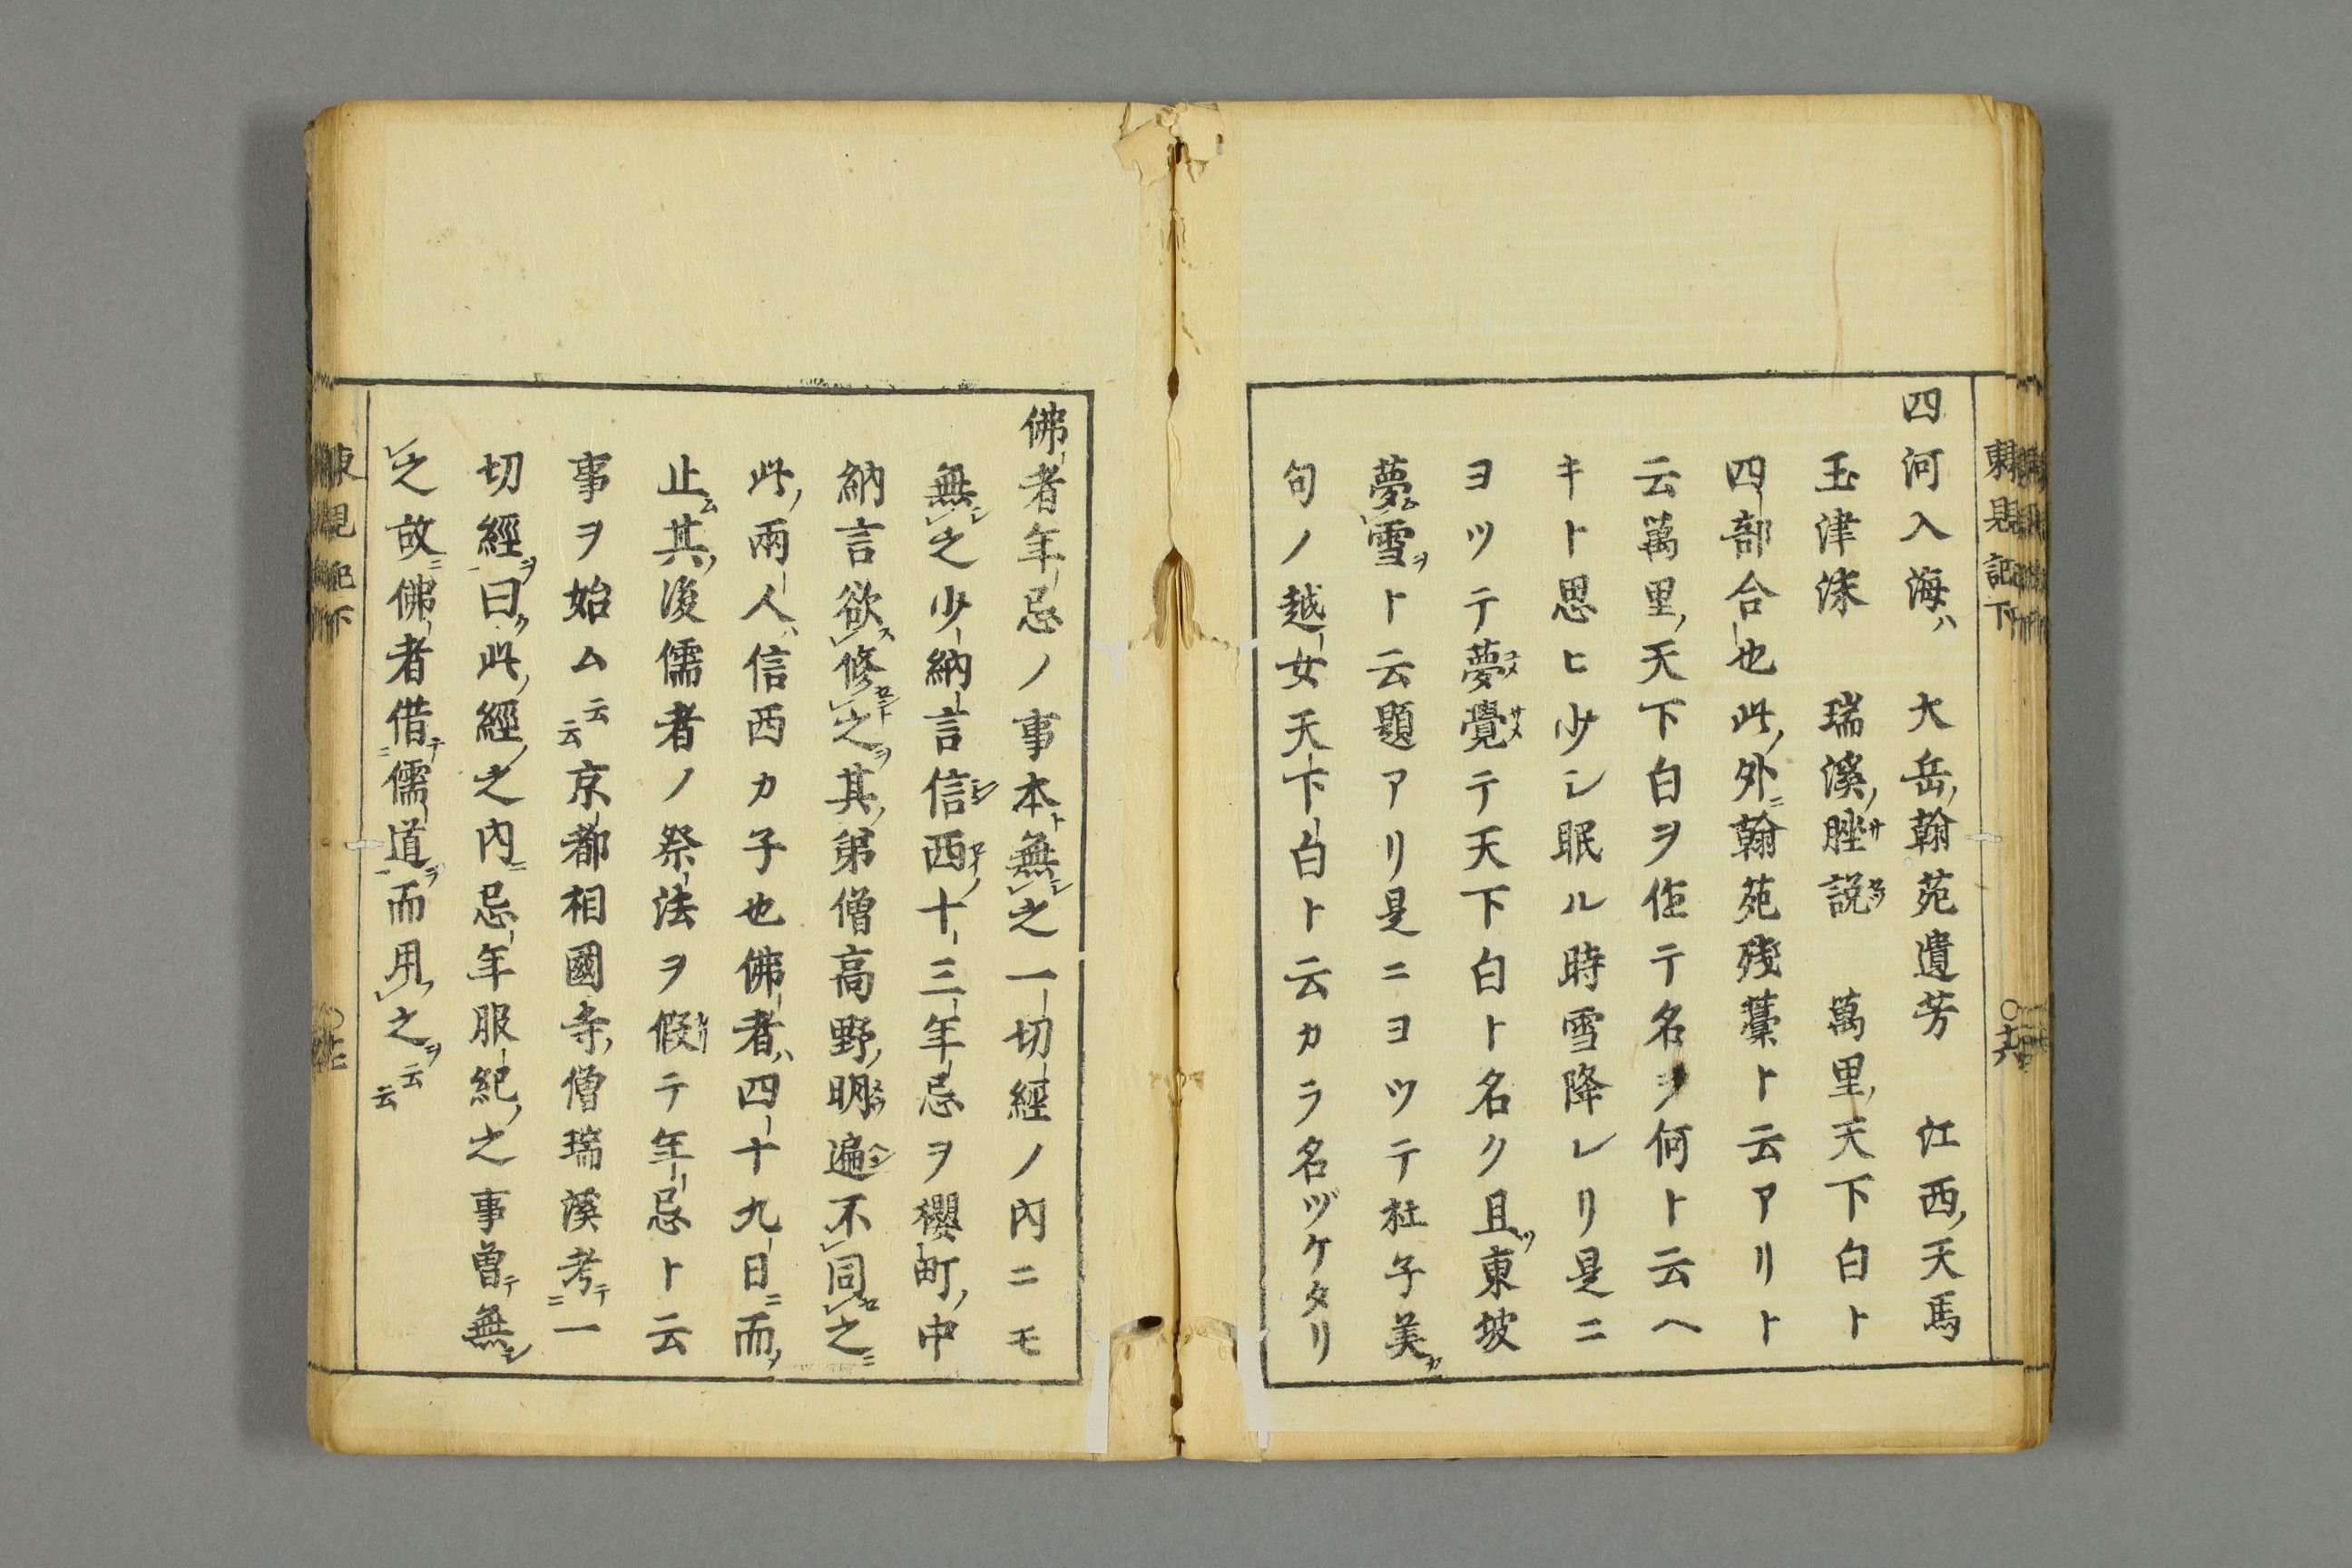 四河入海ハ 大岳ノ翰苑遺芳 江西ノ天馬
玉津沫 瑞溪ノ脞説 萬里ノ天下白ト
四部合也此ノ外ニ翰苑殘藁ト云アリト
云萬里ノ天下白ヲ作テ名ヲ何ト云ヘ
キト思ヒ少シ眠ル時雪降レリ是ニ
ヨツテ夢覺テ天下白ト名ク且ツ東坡
夢雪ヲト云題アリ是ニヨツテ杜子美カ
句ノ越女天下白ト云カラ名ヅケタリ
佛者年忌ノ事本ト無シ之一切經ノ内ニモ
無シ之少納言信西十三年忌ヲ櫻町ノ中
納言欲ス修セント之ヲ其ノ弟僧高野ノ明遍不同セ之ニ
此ノ兩人ハ信西カ子也佛者ハ四十九日ニ而ノ
止ム其ノ後儒者ノ祭法ヲ假テ年忌ト云
事ヲ始ム云云京都相國寺ノ僧瑞溪考テニ一
切經ヲ一曰ク此ノ經ノ之内ニ忌年服紀ノ之事曽テ無シ
之故ニ佛者借テニ儒道ヲ一而用ユ之ヲ云云
東見記下
東見記下